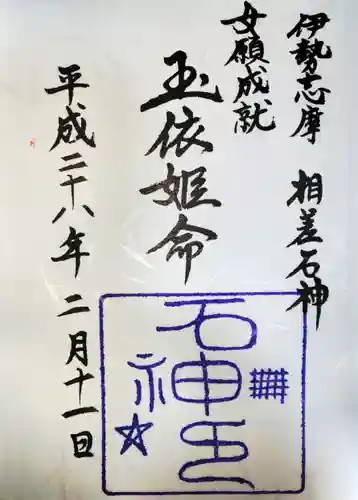 伊勢志摩　相差石神
女願成就
玉依姫命
平成二十八年二月十一日
石神